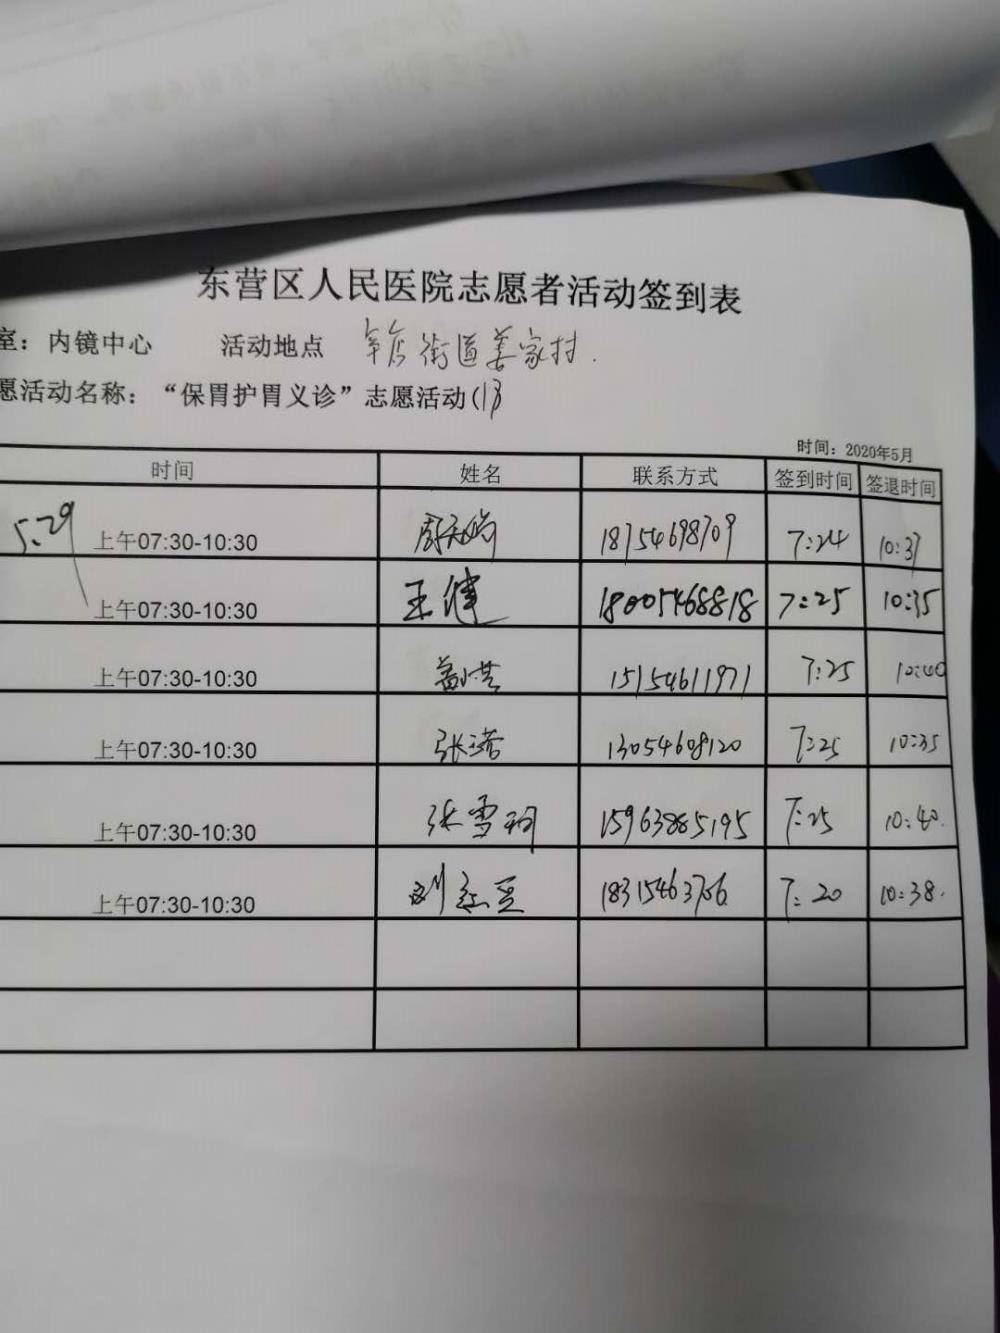 东营区人民医院志愿者活动签到表
室：内镜中心 活动地点 辛店街道姜家村.
愿活动名称：“保胃护胃义诊”志愿活动(13)
时间：2020年5月
时间 姓名 联系方式 签到时间 签退时间
5.29 上午07:30-10:30 周 18754698709 7:24 10:37
上午07:30-10:30 王健 18005468818 7:25 10:35
上午07:30-10:30 15154611971 7:25 10:40
上午07:30-10:30 张 13054608120 7:25 10:35
上午07:30-10:30 张雪 15963885195 7:25 10:40.
上午07:30-10:30 刘 18315463706 7:20 10:38.